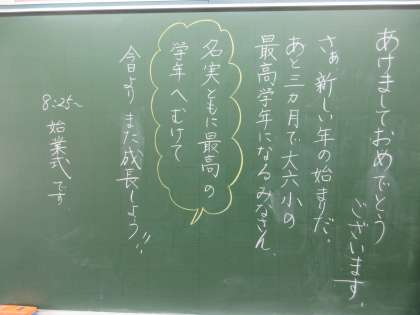 あけましておめでとう
ございます。
さぁ 新しい年の始まりだ。
あと三カ月で大六小の
最高学年になるみなさん、
名実ともに最高の
学年へむけて
今日より また成長しよう!!
8:25~
始業式です。